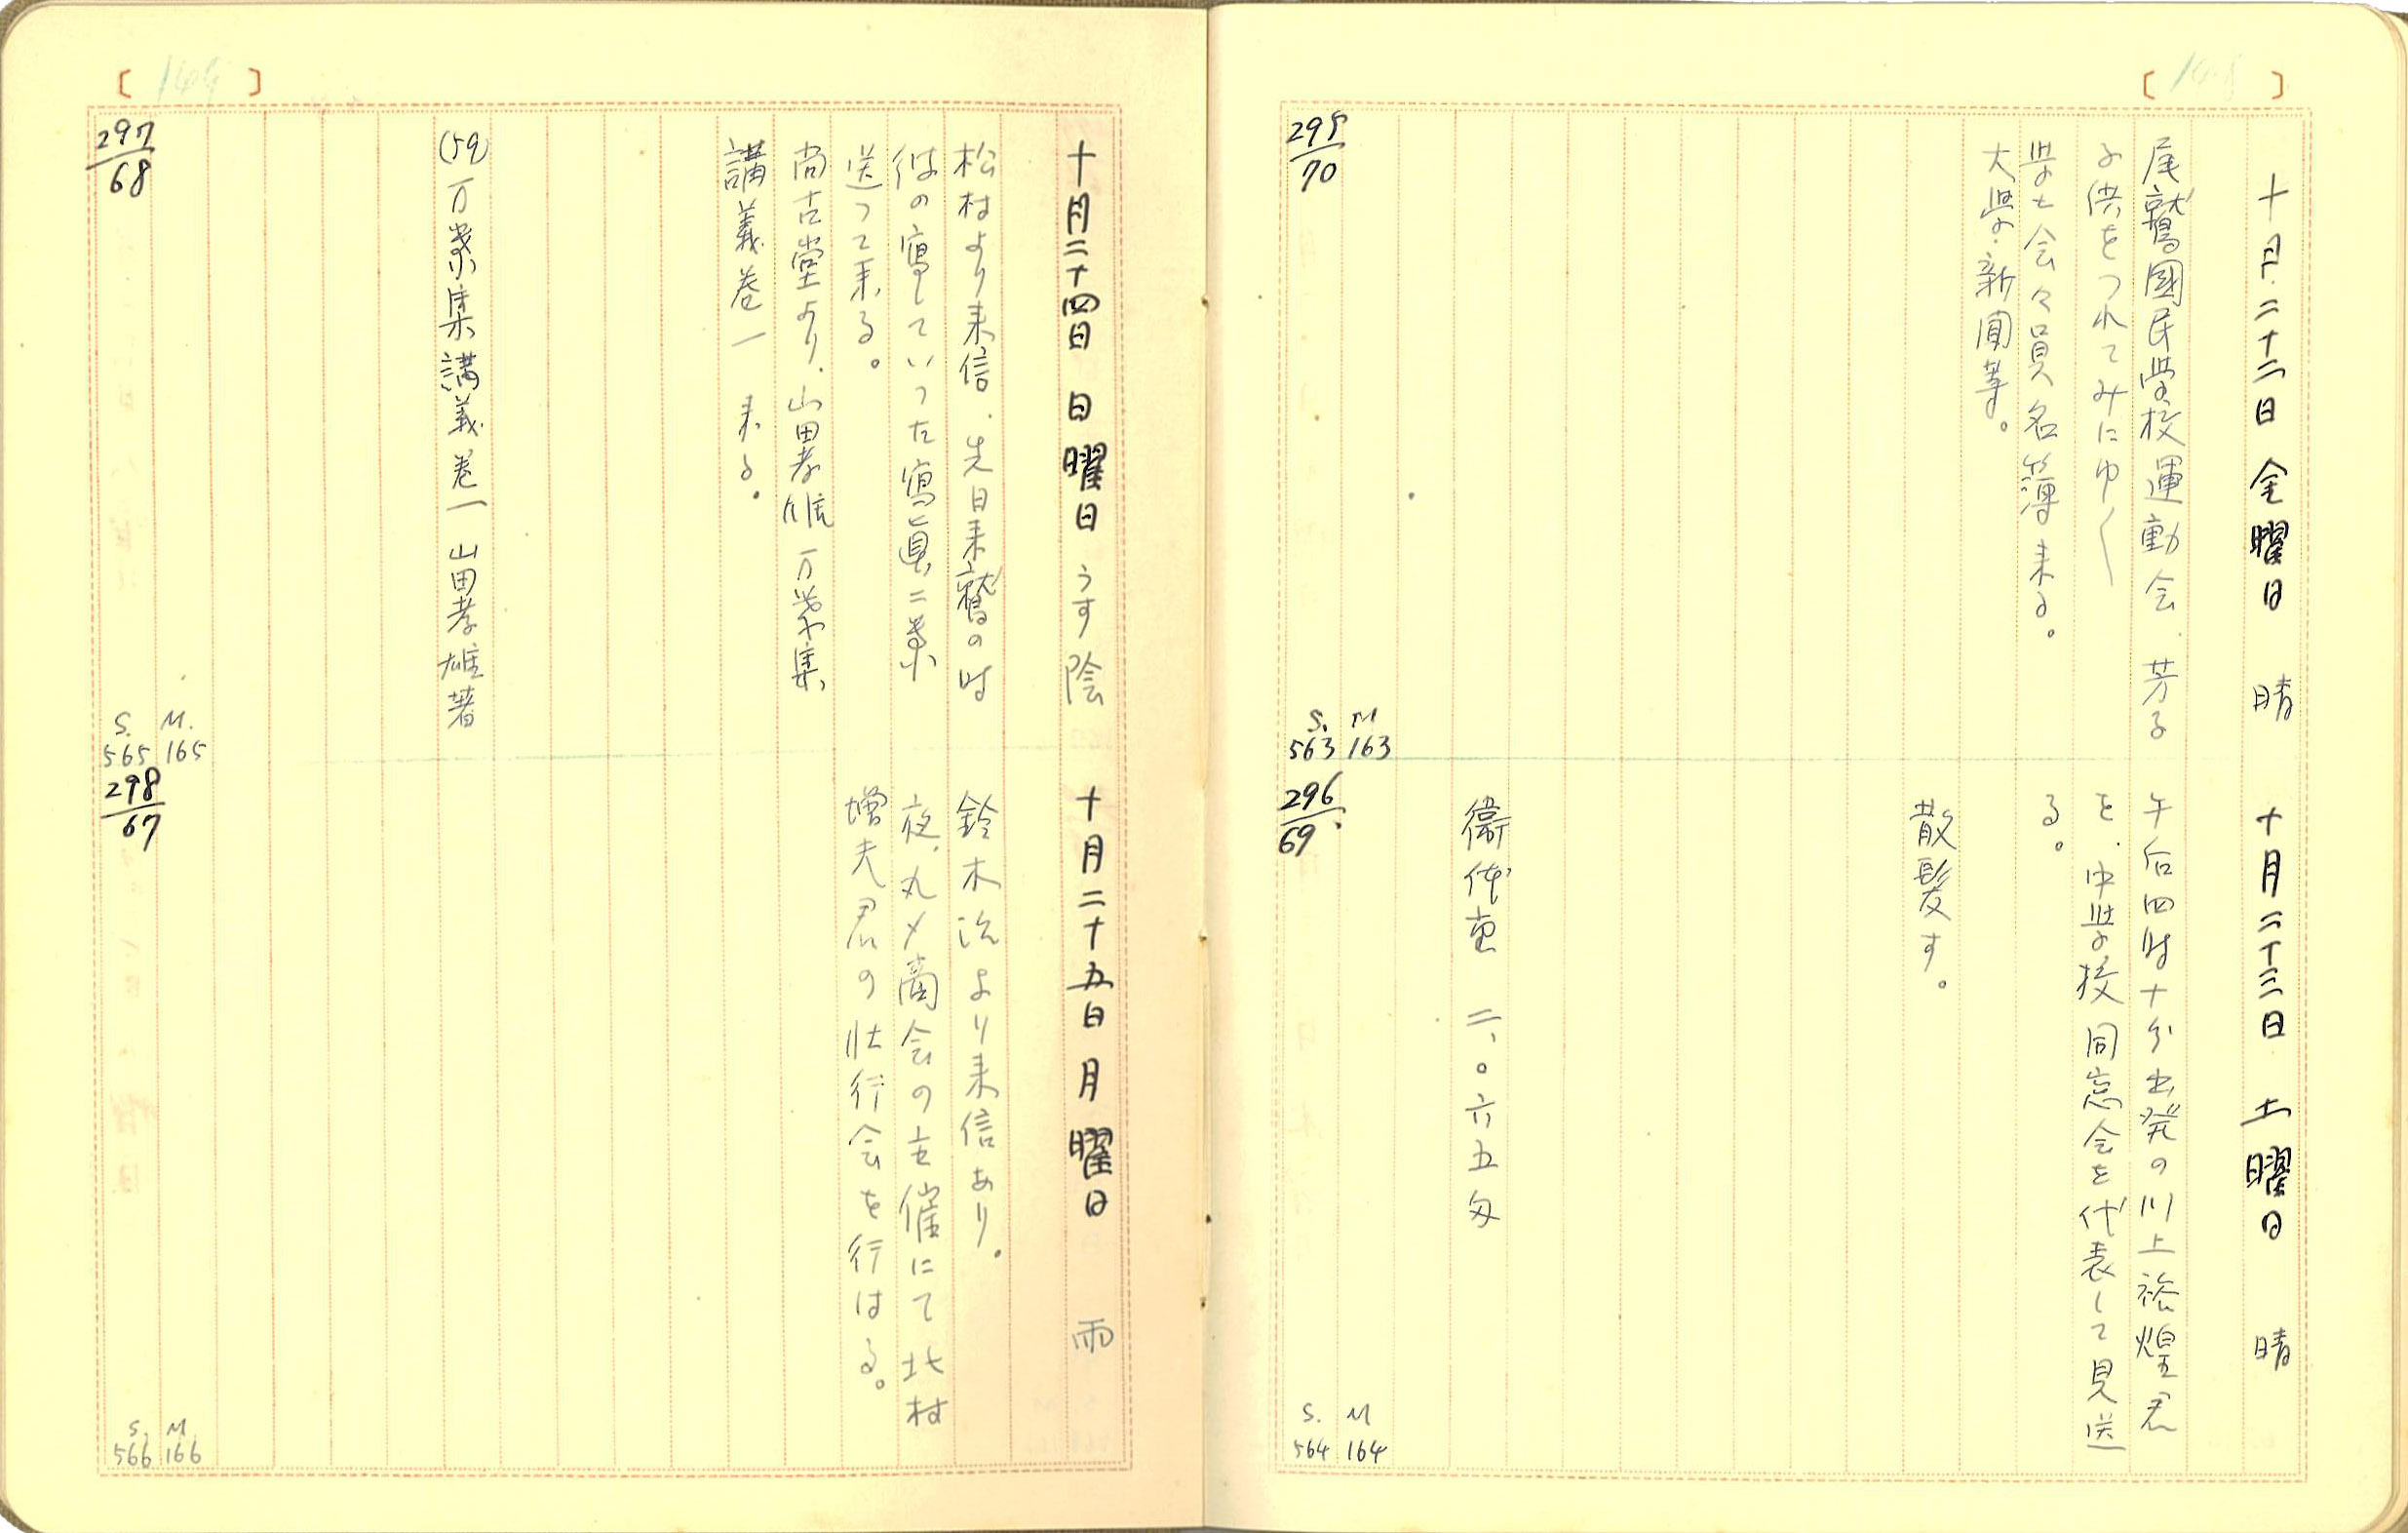 十月二十二日 金曜日 晴
尾鷲國民学校運動会、芳子
子供をつれてみにゆく
学士会々員名簿来る。
大学新聞等。
295/70
S. M
563 163
十月二十三日 土曜日 晴
午后四時十分出発の川上裕煌君
を、中学校同窓会を代表して見送
る。
散髪す。
衞体重 二、〇六五匁
296/69
S. M
564 164
十月二十四日 日曜日 うす陰
松村より来信、先日来鷲の時
彼の寫していった寫眞二葉
送って来る。
尚古堂より、山田孝雄 万葉集
講義巻一 来る。
(59) 万葉集講義巻一 山田孝雄著
297/68
S. M.
565 165
十月二十五日 月曜日 雨
鈴木治より来信あり。
夜、丸〆商会の主催にて北村
増夫君の壮行会を行はる。
298/67
S. M
566 166